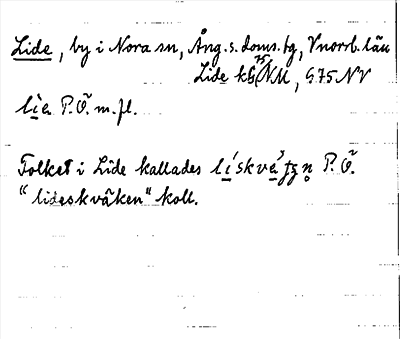 Lide, by i Nora sn, Ång. s. doms. tg, Vnorrl. län
Lide kb NM, G75 NV
li̱a P.Ö. m.fl.
Folket i Lide kallades li̱skva̱ P.Ö.
"lideskväken" koll.